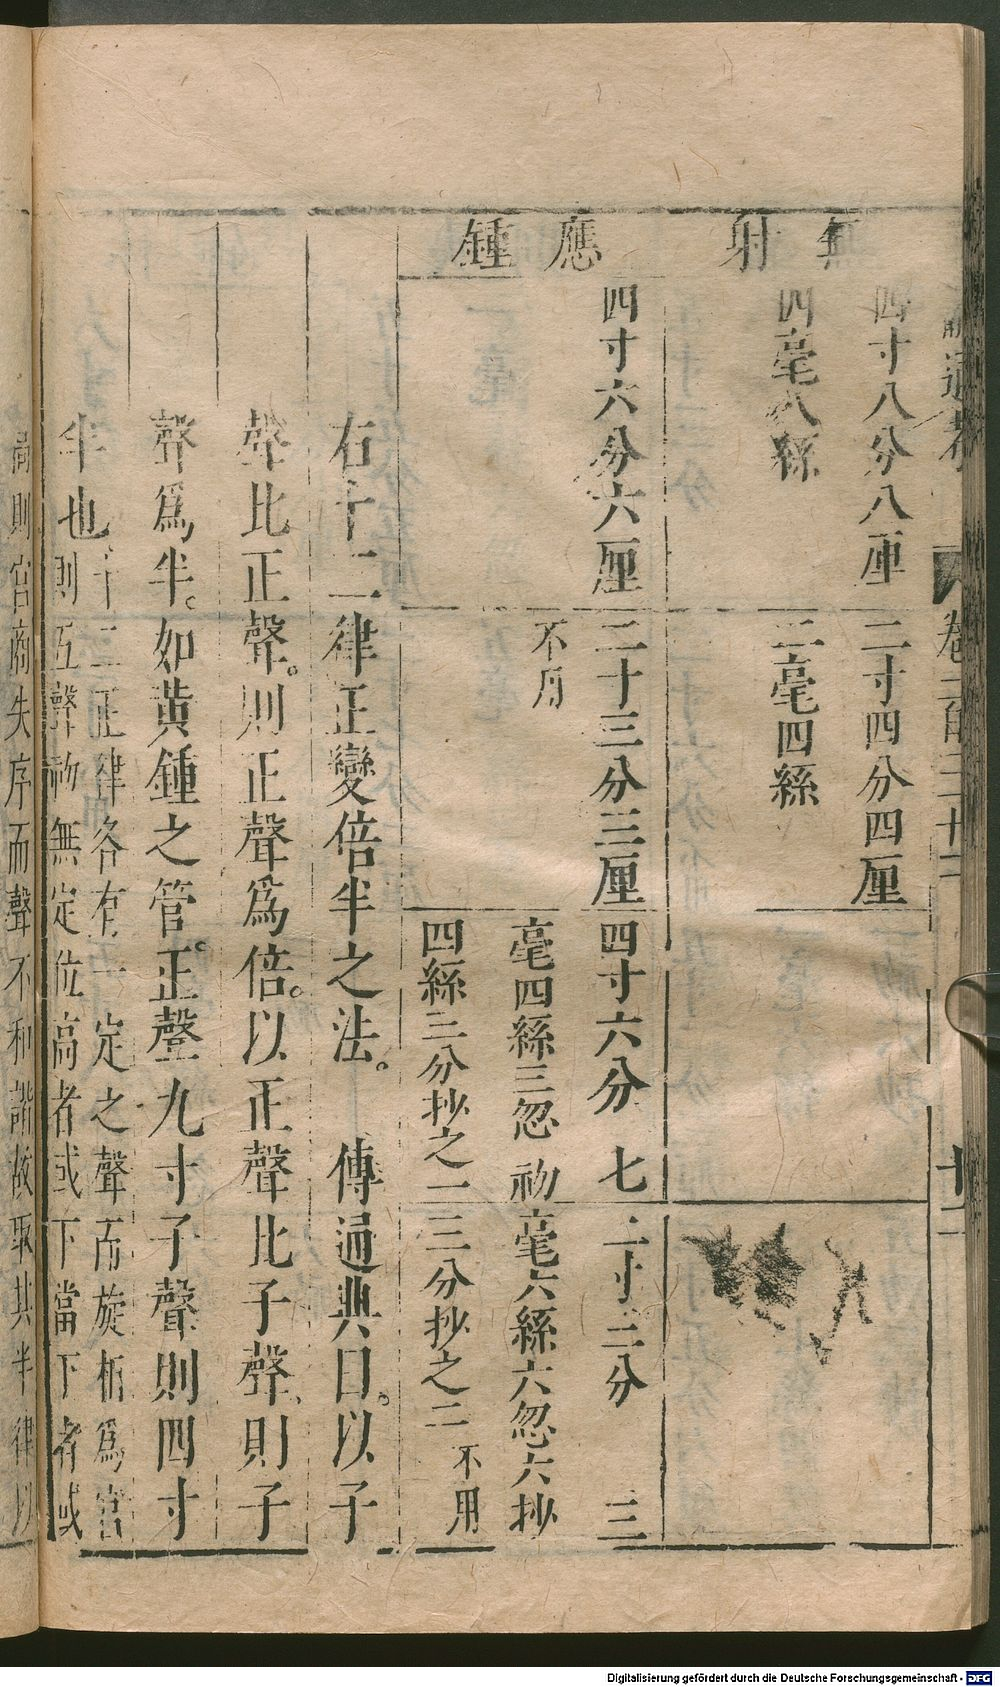 通考 卷 十二
無射
四寸八分八厘
四毫八絲
二寸四分四厘
二毫四絲
應鍾
四寸六分六厘
二寸三分三厘
不用
四寸六分 七
毫四絲三忽 初
四絲三分抄之一
二寸三分 三
毫六絲六忽六抄
三分抄之二 不用
右十二律正變倍半之法。 傳通典曰。以子
聲比正聲。則正聲爲倍。以正聲比子聲、則子
聲爲半。如黃鍾之管。正聲九寸子聲則四寸
半也、十二正律各有一定之聲而旋相爲宮
則互聲初無定位高者或下當下者或
則宮商失序而聲不和諧故取其半律以
Digitalisierung gefördert durch die Deutsche Forschungsgemeinschaft - DFG